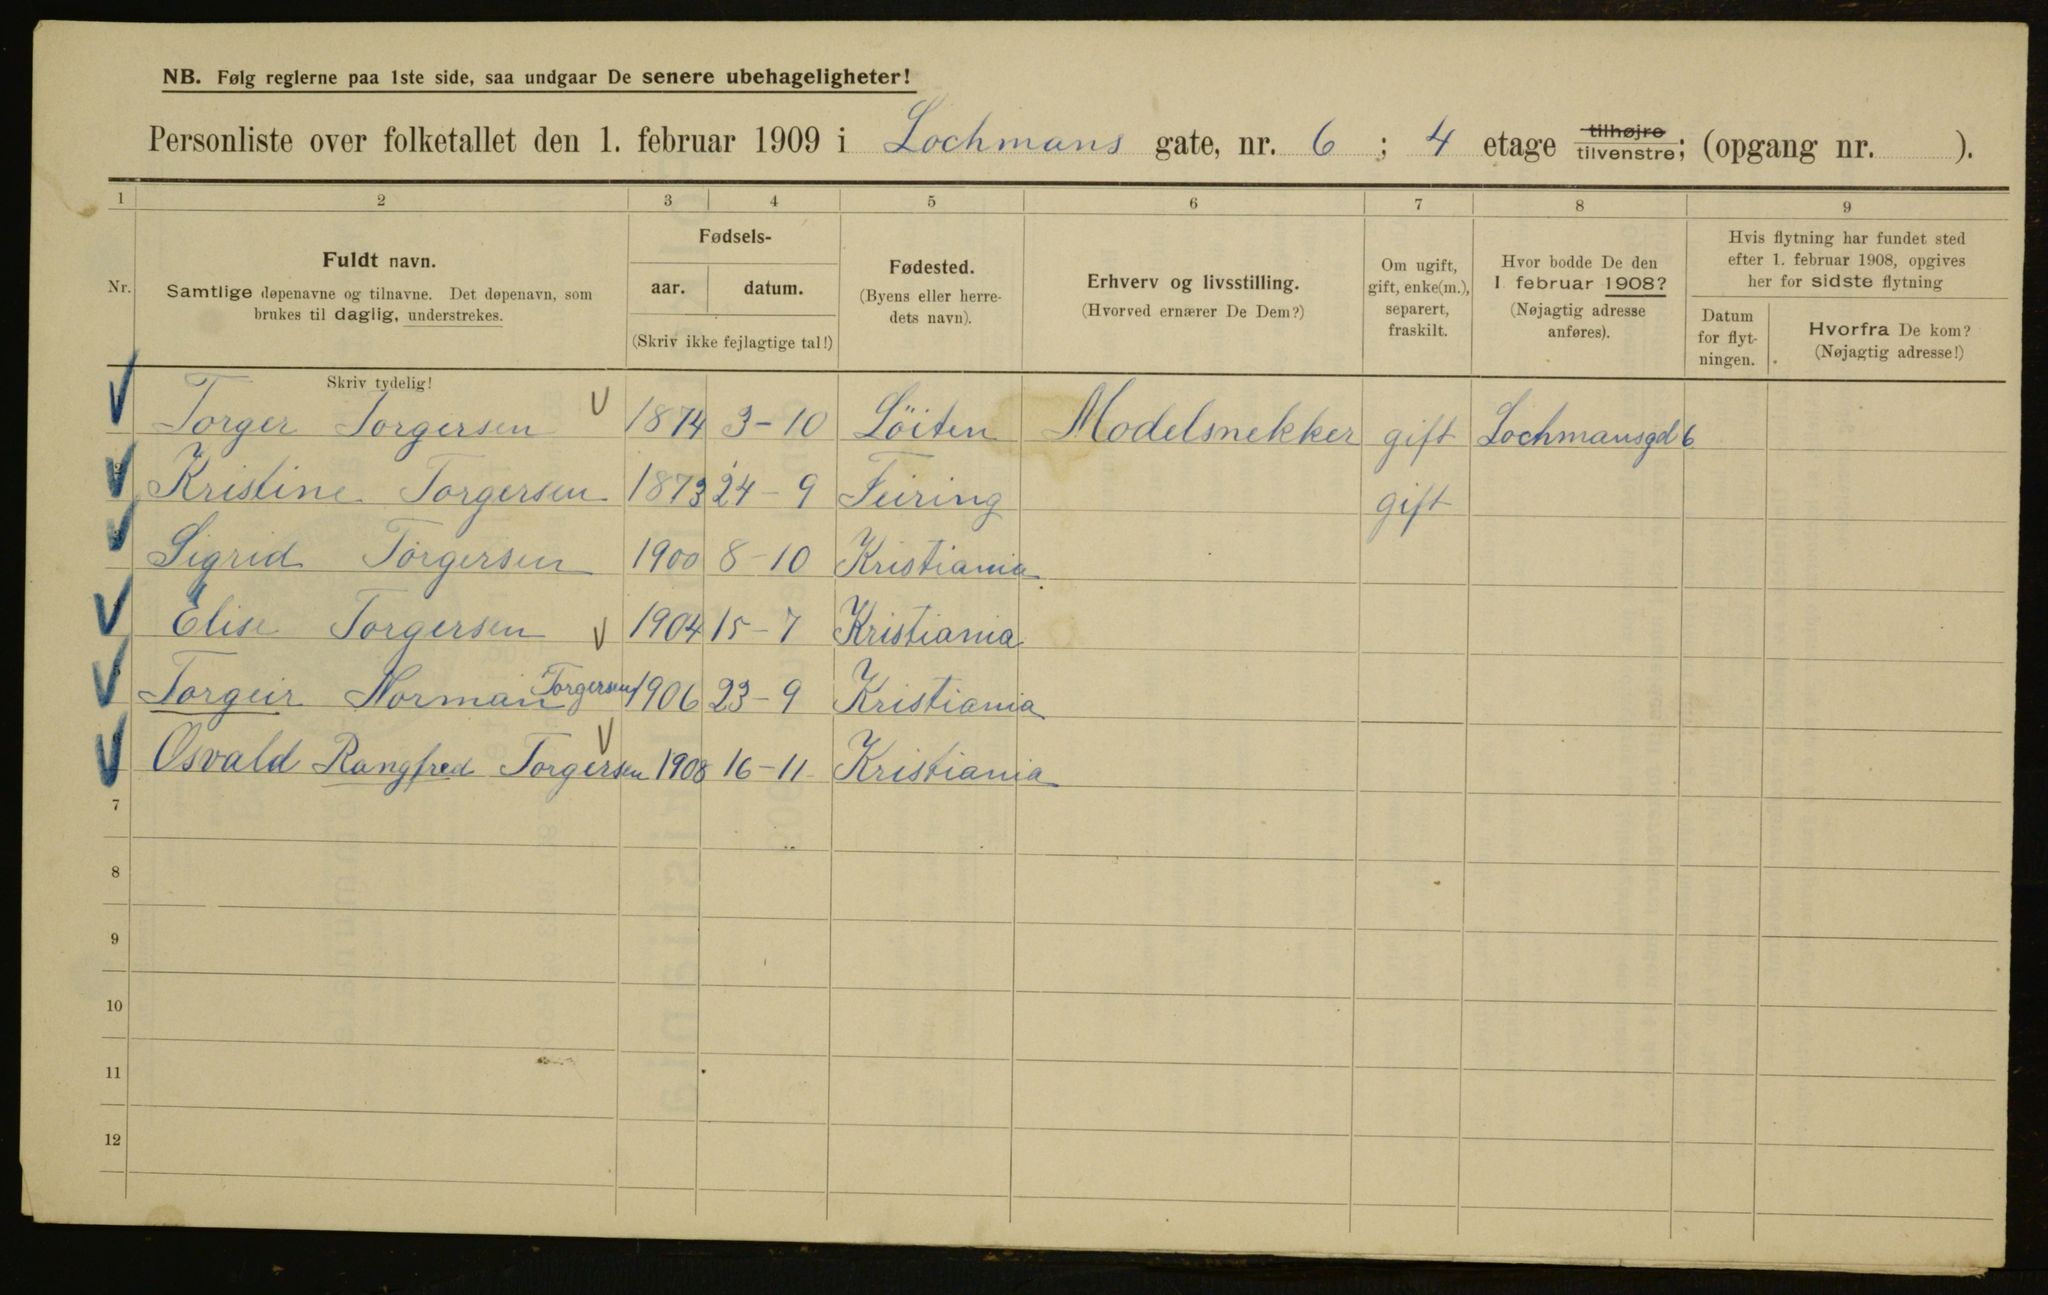 NB. Følg reglerne paa 1ste side, saa undgaar De senere ubehageligheter!
Personliste over folketallet den 1. februar 1909 i Lochmans gate, nr. 6 ; 4 etage tilhøjre tilvenstre; (opgang nr. ).
1 2 3 4 5 6 7 8 9
Nr. Fuldt navn. Samtlige døpenavne og tilnavne. Det døpenavn, som brukes til daglig, understrekes.
Fødsels- aar. datum. (Skriv ikke fejlagtige tal!)
Fødested. (Byens eller herre- dets navn).
Erhverv og livsstilling. (Hvorved ernærer De Dem?)
Om ugift, gift, enke(m.), separert, fraskilt.
Hvor bodde De den 1 februar 1908? (Nøjagtig adresse anføres).
Hvis flytning har fundet sted efter 1. februar 1908, opgives her for sidste flytning
Datum for flyt- ningen. Hvorfra De kom? (Nøjagtig adresse!)
Skriv tydelig!
Torger Torgersen 1874 3-10 Löiten Modelsnekker gift Lochmansgd 6
Kristine Torgersen 1873 24-9 Feiring gift
Sigrid Torgersen 1900 8-10 Kristiania
Elise Torgersen 1904 15-7 Kristiania
Torgeir Norman Torgersen 1906 23-9 Kristiania
Osvald Rangfred Torgersen 1908 16-11 Kristiania
7
8
9
10
11
12